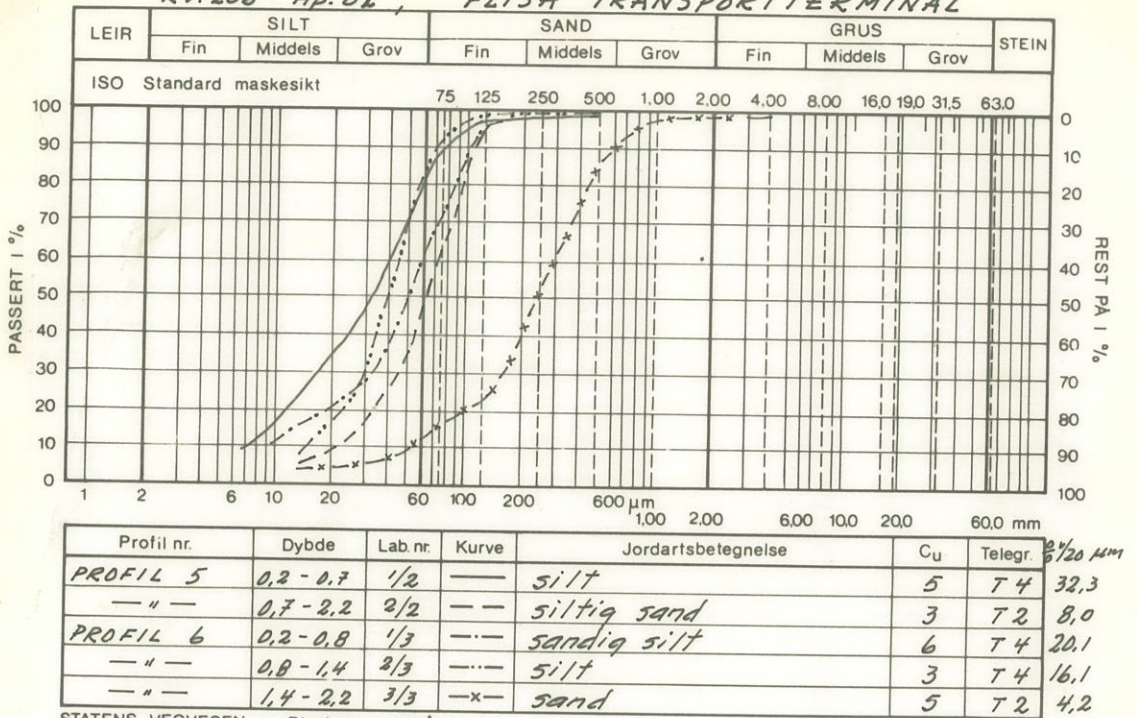 FLISA TRANSPORTTERMINAL
LEIR SILT SAND GRUS STEIN
Fin Middels Grov Fin Middels Grov Fin Middels Grov
ISO Standard maskesikt
75 125 250 500 1,00 2,00 4,00 8,00 16,0 19,0 31,5 63,0
PASSERT I %
100
90
80
70
60
50
40
30
20
10
0
REST PÅ I %
0
10
20
30
40
50
60
70
80
90
100
1 2 6 10 20 60 100 200 600 µm
1,00 2,00 6,00 10,0 20,0 60,0 mm
Profil nr. Dybde Lab. nr. Kurve Jordartsbetegnelse Cu Telegr. % v/20 µm
PROFIL 5 0,2 - 0,7 1/2 silt 5 T 4 32,3
— " — 0,7 - 2,2 2/2 siltig sand 3 T 2 8,0
PROFIL 6 0,2 - 0,8 1/3 sandig silt 6 T 4 20,1
— " — 0,8 - 1,4 2/3 silt 3 T 4 16,1
— " — 1,4 - 2,2 3/3 sand 5 T 2 4,2
STATENS VEGVESEN